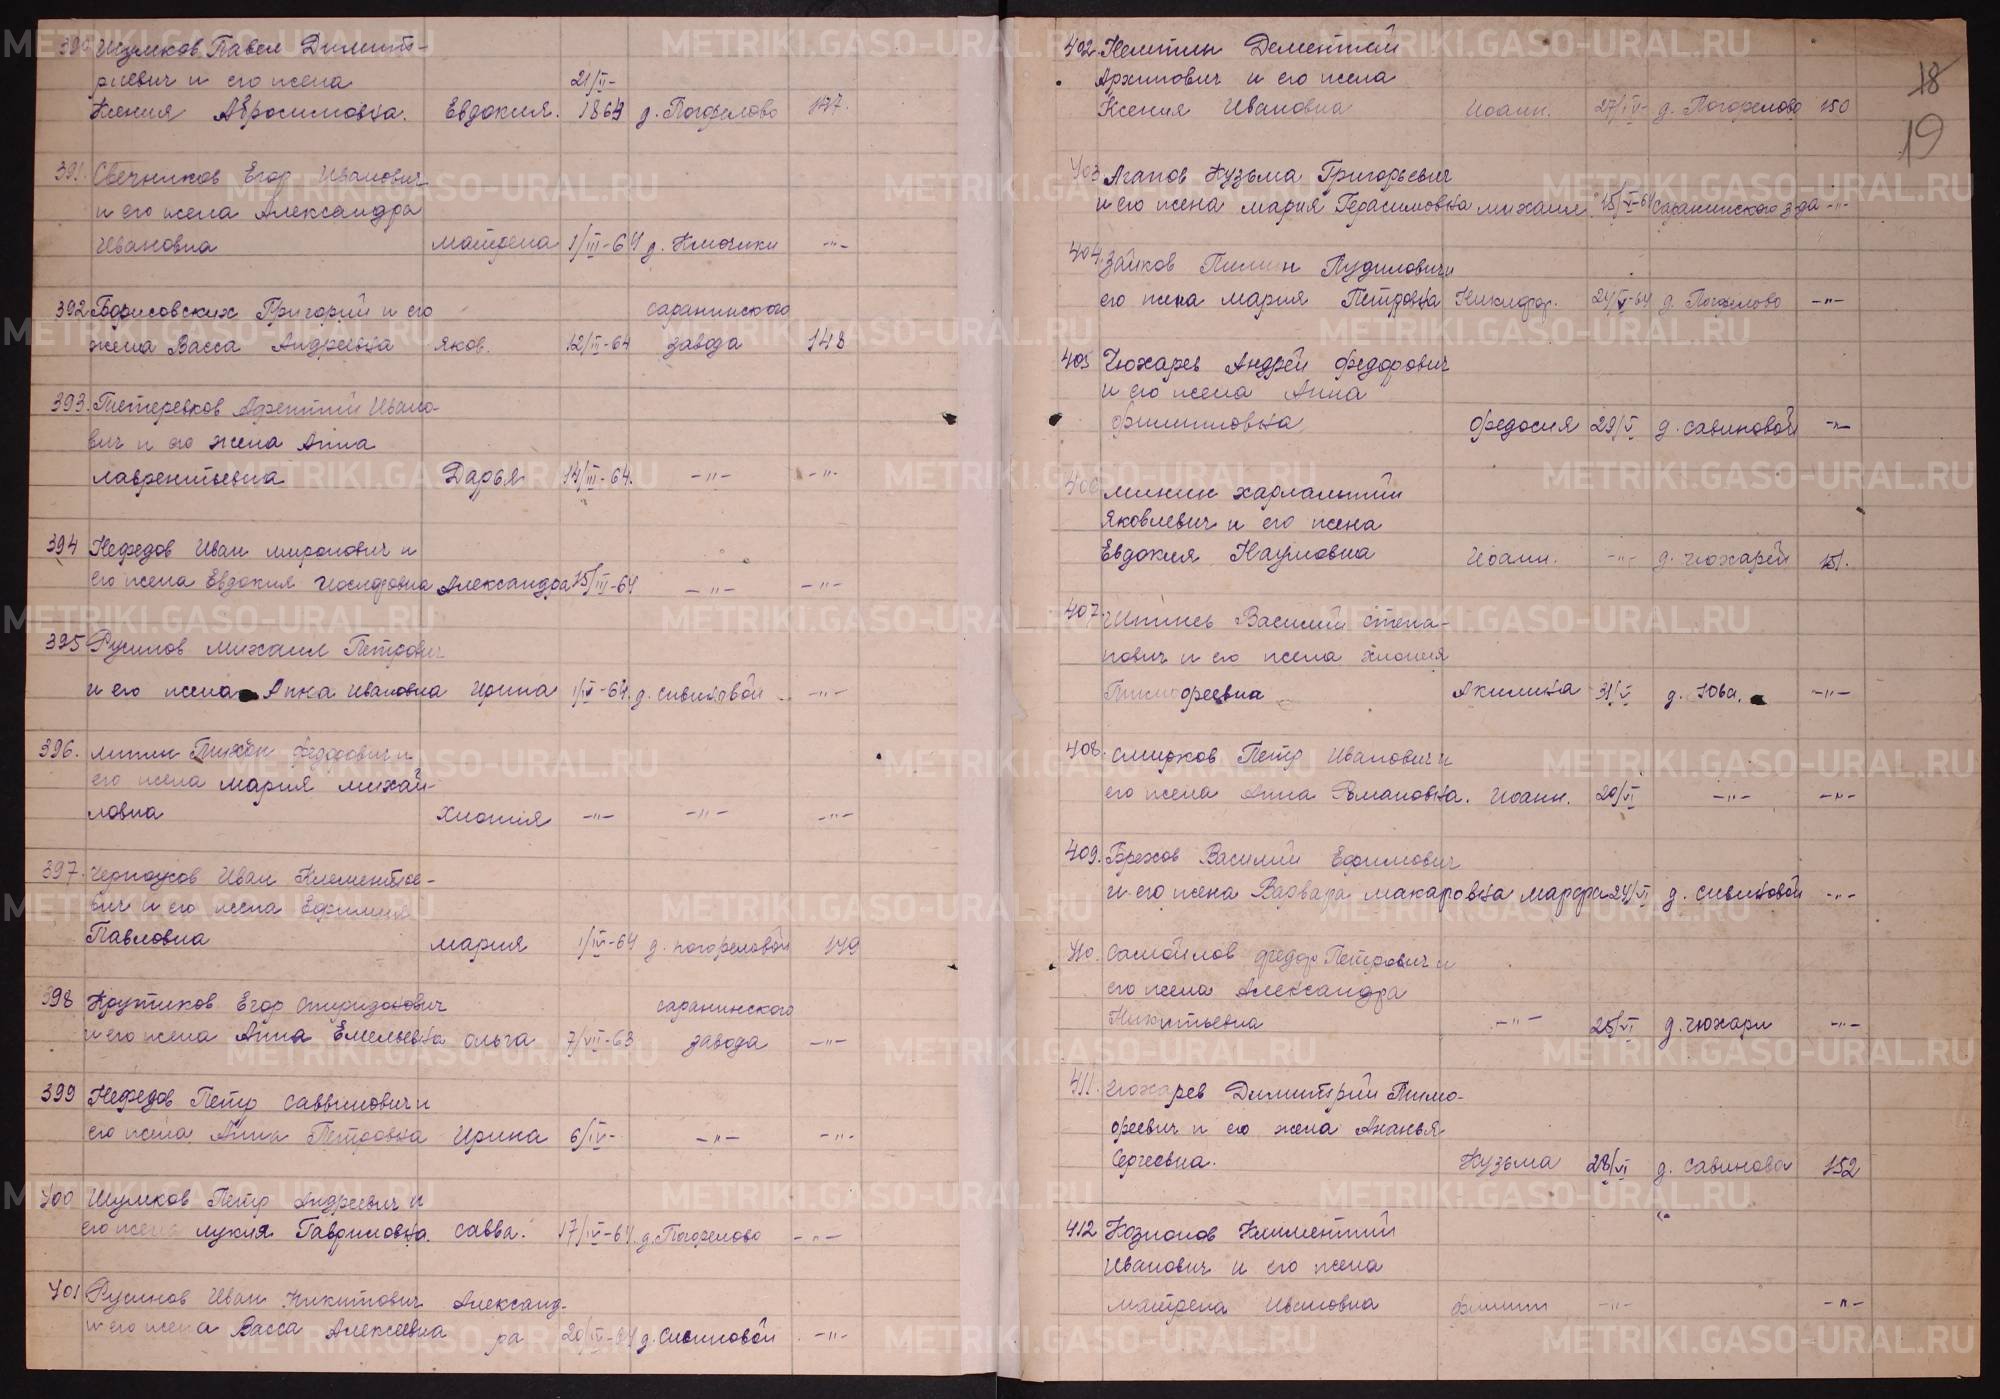 Шумков Павел Димит-
риевич и его жена
Ксения Абросимовна. Евдокия. 21/II-1864 д. Погорелово 147.
391. Свечников Егор Иванович
и его жена Александра
Ивановна Матрена 1/III-64 д. Ключики -"-
392 Борисовских Григорий и его
жена Васса Андреевна Яков. 12/III-64 Саранинского завода 148
393. Тетеревков Афентий Ивано-
вич и его жена Анна
Лаврентьевна Дарья 14/III-64. -"- -"-
394 Нефедов Иван Миронович и
его жена Евдокия Иосифовна Александра 15/III-64 -"- -"-
395 Русинов Михаил Петрович
и его жена Анна Ивановна Ирина 1/IV-64. д. Сивиновой -"-
396. Тихон Федорович и
его жена Мария Михай-
ловна Хиония -"- -"- -"-
397. Иван Клементье-
вич и его жена Ефимия
Павловна Мария 1/IV-64 д. Погореловой 149
398 Крутиков Егор Спиридонович
и его жена Анна Емельевна Ольга 7/VII-63 Саранинского завода -"-
399 Нефедов Петр Саввинович и
его жена Анна Петровна Ирина 6/IV- -"- -"-
400 Шумков Петр Андреевич и
его жена Лукия Гавриловна. Савва. 17/IV-64. д. Погорелово -"-
401 Русинов Иван Никитович Александ-
и его жена Васса Алексеевна ра 20/IV-64 д. Сивиновой -"-
18
19
402. Дементий
Архипович и его жена
Ксения Ивановна Иоанн. 27/IV- д. Погорелово 150
403 Агапов Кузьма Григорьевич
и его жена Мария Герасимовна Михаил 15/V-64 Саранинского з-да -"-
404. Зайков Пимен Пудилович и
его жена Мария Петровна Никифор. 24/V-64 д. Погорелово -"-
405 Чюхарев Андрей Федорович
и его жена Анна
Филипповна Федосия 29/V д. Савиновой -"-
406 Минин Харлампий
Яковлевич и его жена
Евдокия Наумовна Иоанн. -"- д. Чюхарей 151.
407. Василий Степа-
нович и его жена Хиония
Тимофеевна Акилина 31/V д. Юва. -"-
408. Петр Иванович и
его жена Анна Романовна. Иоанн. 20/VI -"- -"-
409. Брехов Василий Ефимович
и его жена Варвара Макаровна Марфа 24/VI д. Сивиновой -"-
410. Самойлов Федор Петрович и
его жена Александра
Никитьевна -"- 25/VI д. Чюхари -"-
411. Чюхарев Димитрий Тимо-
феевич и его жена Ананья
Сергеевна. Кузьма 28/VI д. Савинова 152
412 Козионов Климентий
Иванович и его жена
Матрена Ивановна Филипп -"- -"-
METRIKI.GASO-URAL.RU